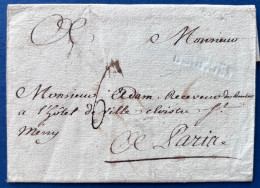 Monsieur
Monsieur Adam Receveur de
a l'hôtel de Ville cloitre St.
Merry
A Paris